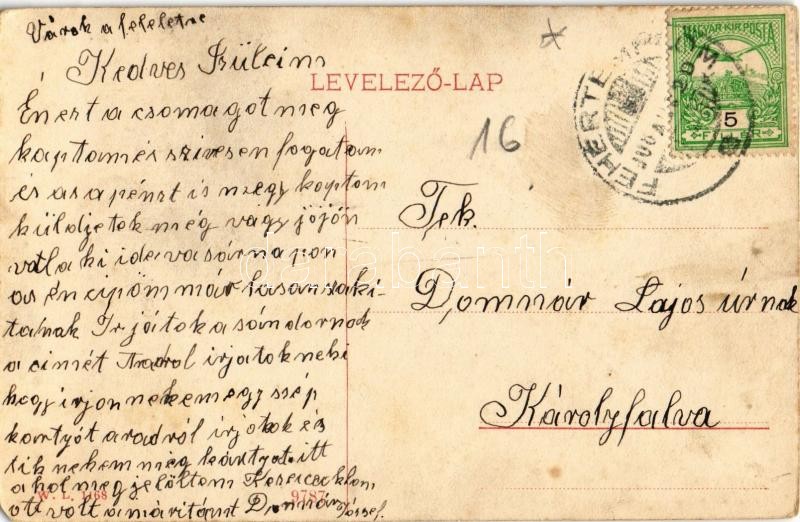 Várok a feleletre
Kedves Szüleim
LEVELEZŐ-LAP
Én ezt a csomagot meg
kaptam és szivesen fogatam
és as a pénzt is megy kaptom
küldjetok még vagy jöjön
vala ki ide vasárnapon
as én cipöm már lasan saki-
tanak Irjátok a sándornak
a cimét Aradol irjatok neki
hogy irjon nekem egy szép
kartyót aradról irjatok és
tik nekem még kártyat itt
a hol meg jelöltem
ott volt a máritánt Domnár
József.
W. L. 1168 9787
16
MAGYAR KIR. POSTA
5
FILLÉR
FEHÉRTEMPLOM
Tek.
Domnár Lajos úrnak
Károlyfalva
darabanth